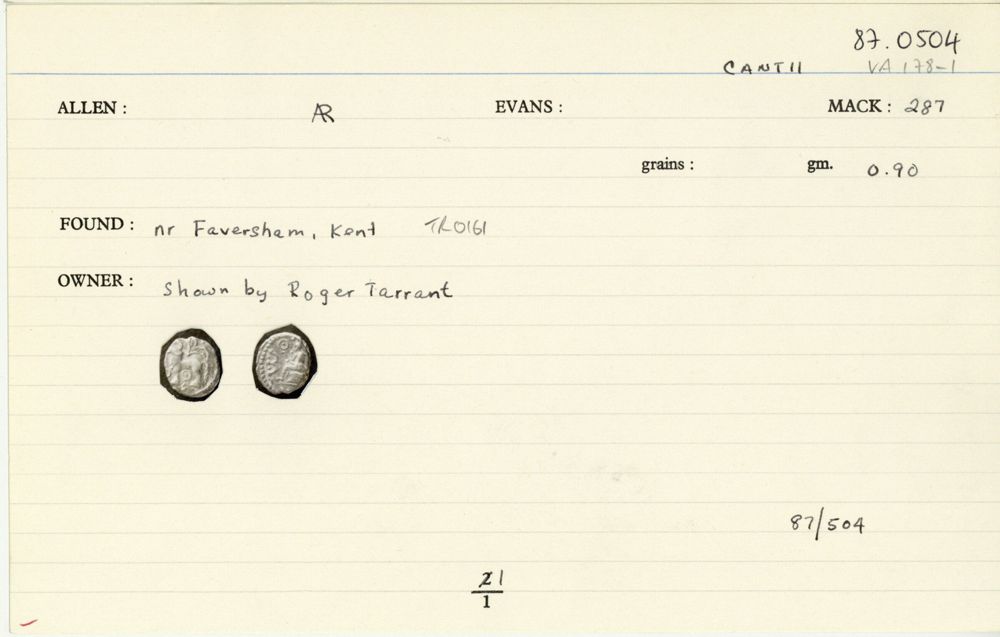 87.0504
CANTII VA 178-1
ALLEN : AR EVANS : MACK : 287
grains : gm. 0.90
FOUND : nr Faversham, Kent TR0161
OWNER : Shown by Roger Tarrant
87/504
1
1